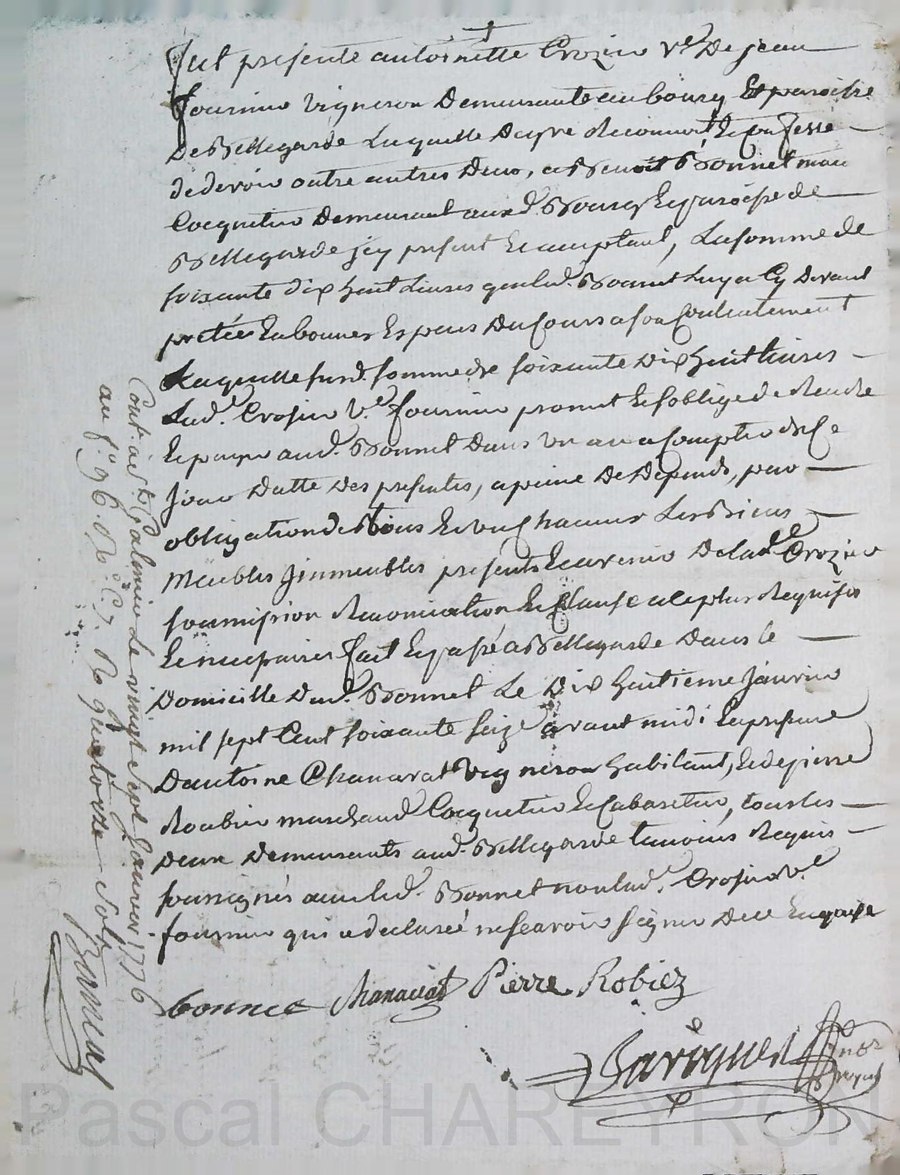 fut presente antoinette Crozier v.e De jean
fournier vigneron Demeurante au bourg Et paroisse
De Bellegarde Laquelle De gre Reconnoit Et confesse
de devoir outre autres Deus, a Benoit Bonnet mar
Cocquetier Demeurant aud. Bourg Et paroisse de
Bellegarde jcy present Et acceptant, La somme de
soixante dix huit Livres que led. Bonnet Luy a Cy Devant
pretée En bonnes Especes Du Cours a son Contentement
Laquelle susd. somme de soixante Dix huit Livres
Lad. Crosier v.e fournier promet Et soblige de Rendre
Et payer aud. Bonnet Dans un an a Compter de Ce
jour Datte Des presentes, a peine De Depends, par
obligation de tous Et un chacuns Les Biens
Meubles jmmeubles presents Et avenir De lad.e Crozier
soumission Renonciation Et Clause a ce plus Requises
Et necessaires fait Et passé a Bellegarde Dans le
Domicille Dud. Bonnet Le Dix huitieme janvier
mil sept Cent soixante seize avant midi En presence
Dantoine Chanavat vigneron habitant, Et de pierre
Roubier marchand Cocquetier Et Cabaretier, tous les
Deux Demeurants aud. Bellegarde temoins Requis
soussignés avec led. Bonnet non lad. Crosier v.e
fournier qui a declarée ne scavoir signer De ce Enquise
bonnet Chanavat Pierre Robiez
not.
Royal
Cont. a St Galmier Le vingt sept janvier 1776
au f.o 96 R. quatorze sols